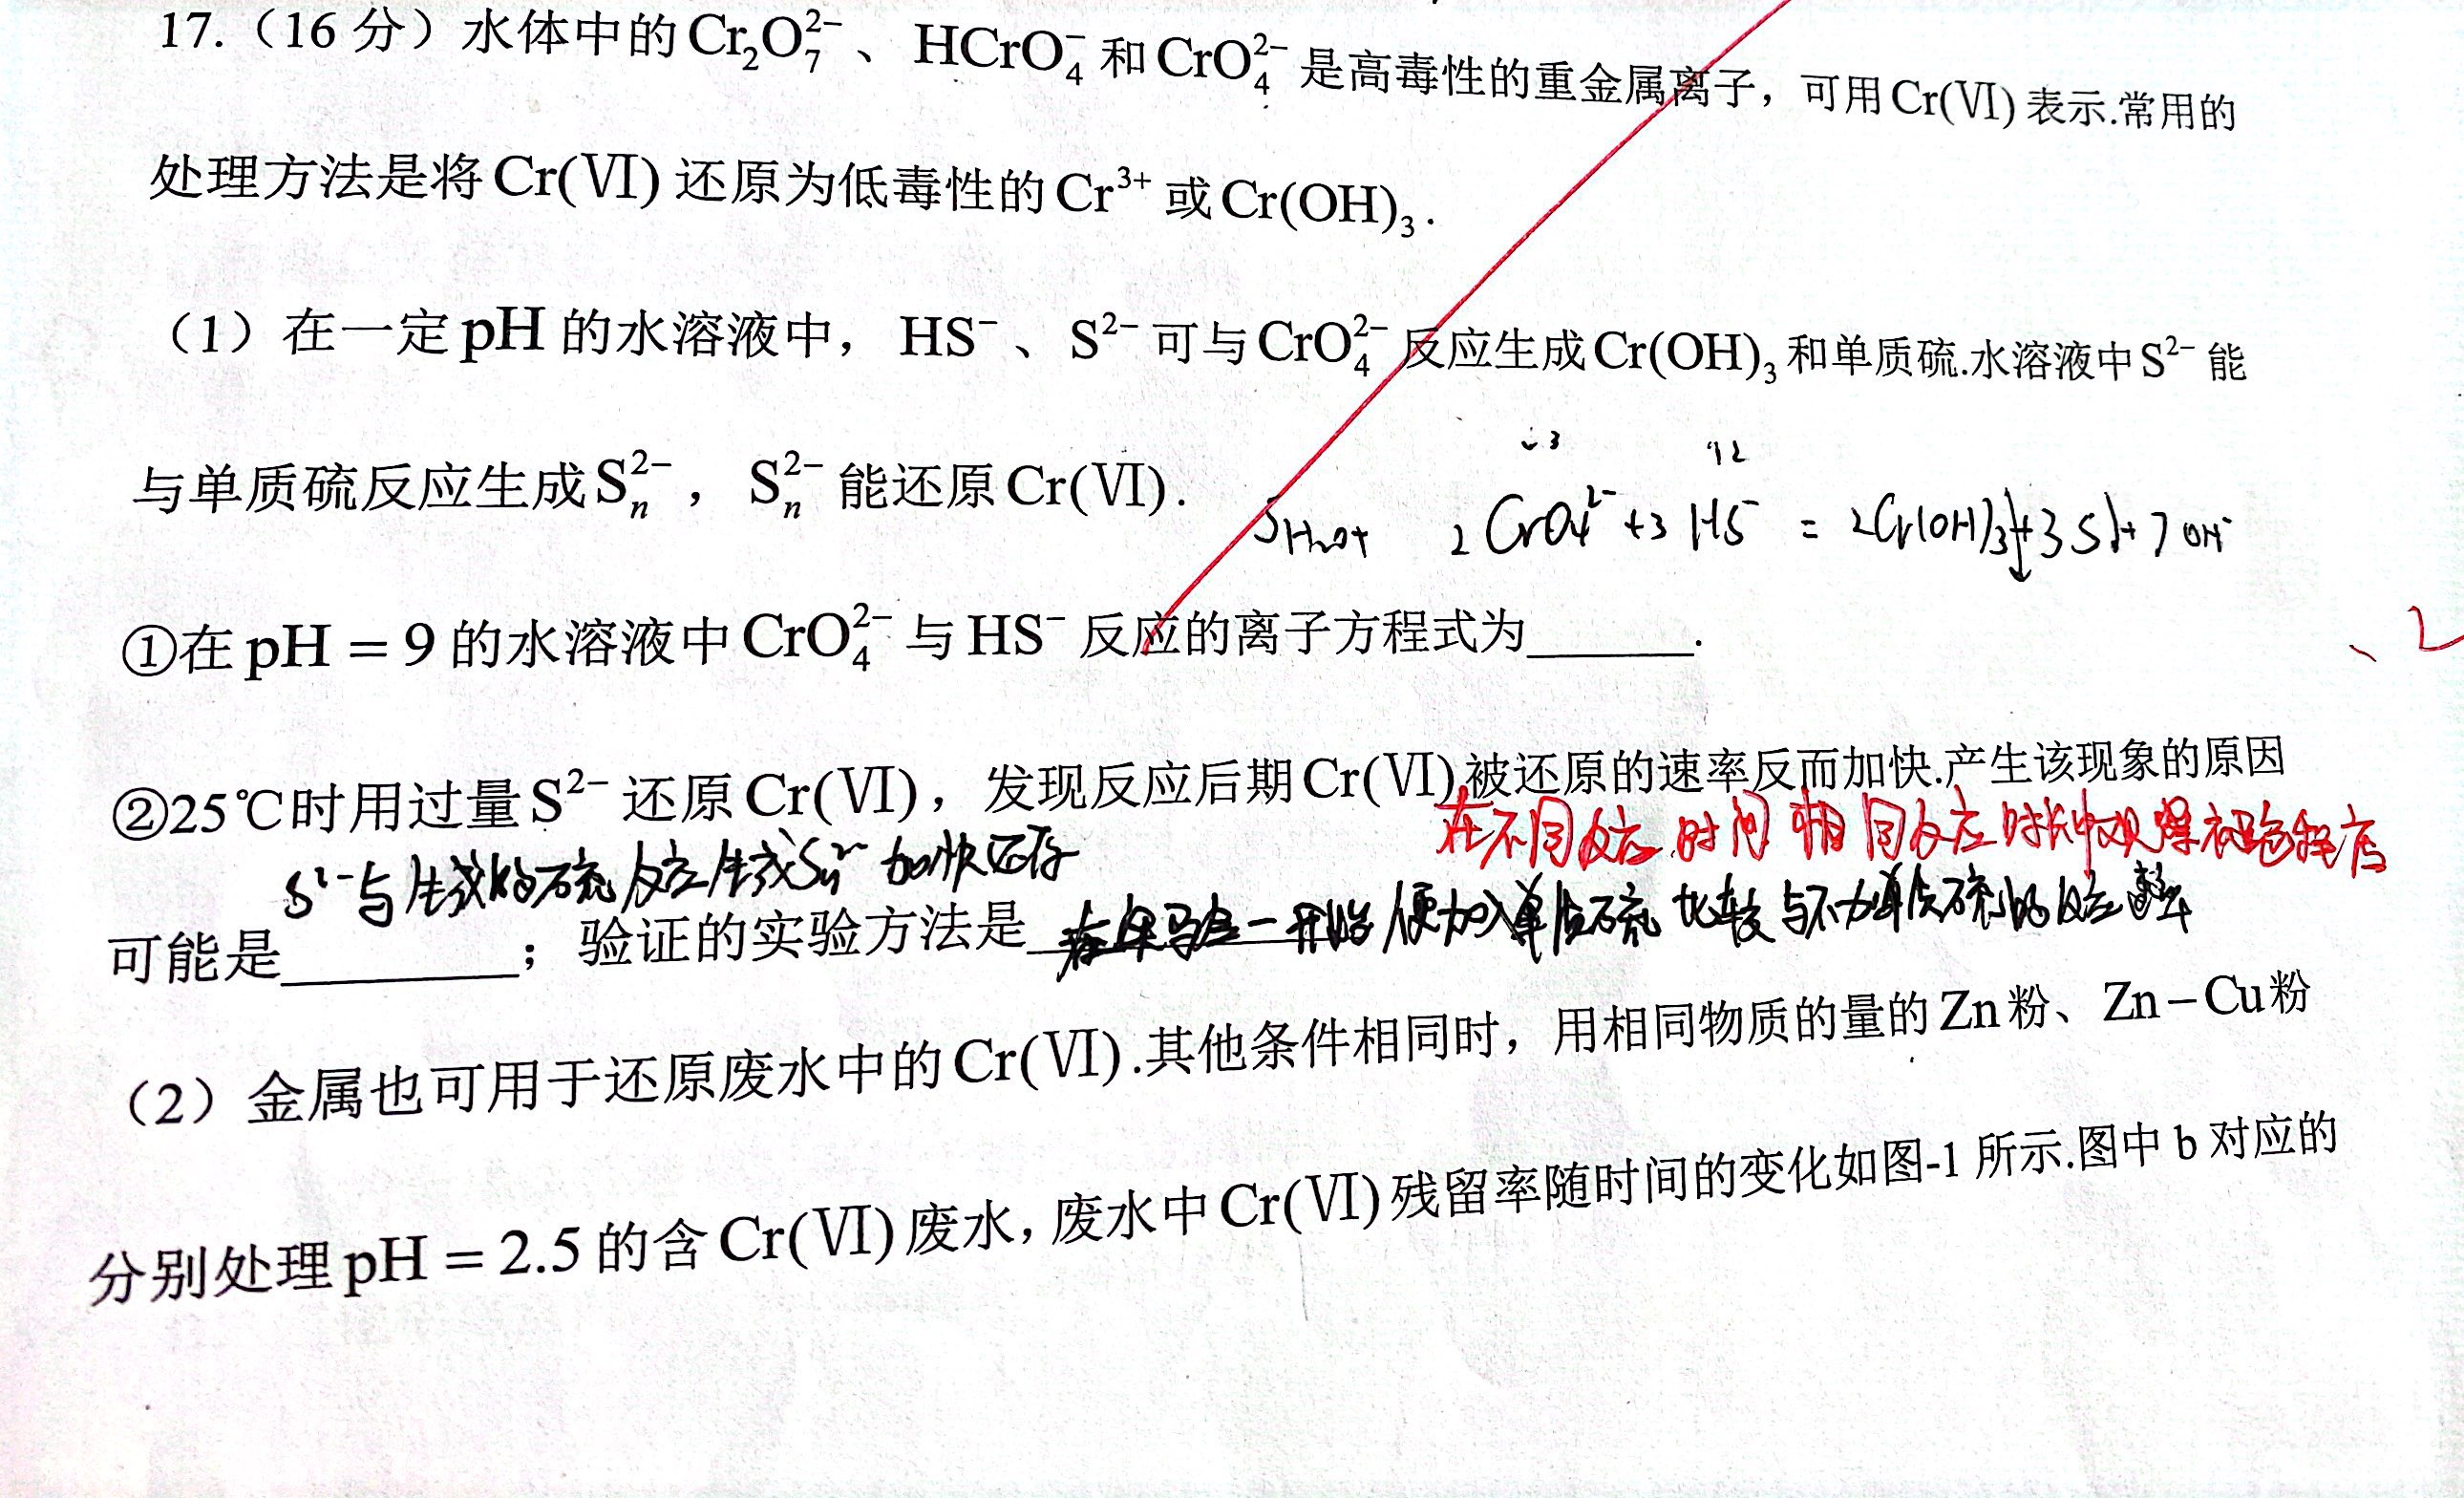 17.（16 分）水体中的Cr₂O₇²⁻、HCrO₄⁻和CrO₄²⁻是高毒性的重金属离子，可用Cr(Ⅵ)表示.常用的
处理方法是将Cr(Ⅵ)还原为低毒性的Cr³⁺或Cr(OH)₃.
（1）在一定pH的水溶液中，HS⁻、S²⁻可与CrO₄²⁻反应生成Cr(OH)₃和单质硫.水溶液中S²⁻能
与单质硫反应生成Sₙ²⁻，Sₙ²⁻能还原Cr(Ⅵ).
5H₂O+ 2CrO₄²⁻+3HS⁻=2Cr(OH)₃↓+3S↓+7OH⁻
①在pH=9的水溶液中CrO₄²⁻与HS⁻反应的离子方程式为______.
②25℃时用过量S²⁻还原Cr(Ⅵ)，发现反应后期Cr(Ⅵ)被还原的速率反而加快.产生该现象的原因
在不同反应时间 相同反应时长中观察褪色程度
S²⁻与生成的硫反应生成Sₙ²⁻加快还原
可能是________；验证的实验方法是______
一开始便加入单质硫 比较与不加单质硫的反应速率
（2）金属也可用于还原废水中的Cr(Ⅵ).其他条件相同时，用相同物质的量的Zn粉、Zn－Cu粉
分别处理pH=2.5的含Cr(Ⅵ)废水，废水中Cr(Ⅵ)残留率随时间的变化如图-1 所示.图中 b 对应的